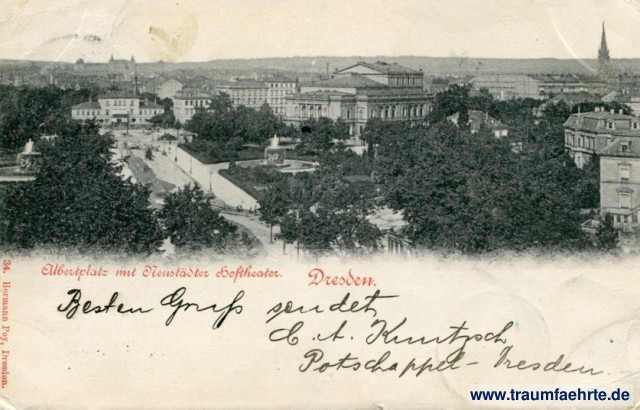 Albertplatz mit Neustädter Hoftheater. Dresden.
Besten Gruß sendet
C. A. Kuntzsch
Potschappel-Dresden.
34. Hermann Poy, Dresden.
www.traumfaehrte.de